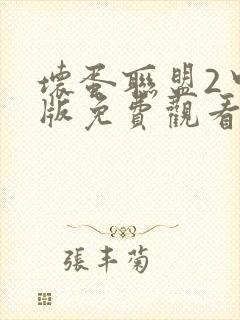 壞蛋聯盟2
版免費觀看
張丰菊